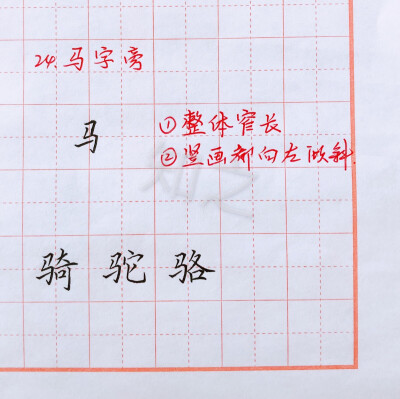 24.马字旁
马
①整体窄长
②竖画都向左倾斜.
骑 驼 骆